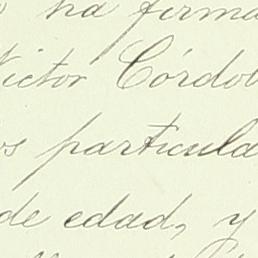 ha firma
Victor Córdob
os particula
de edad, y